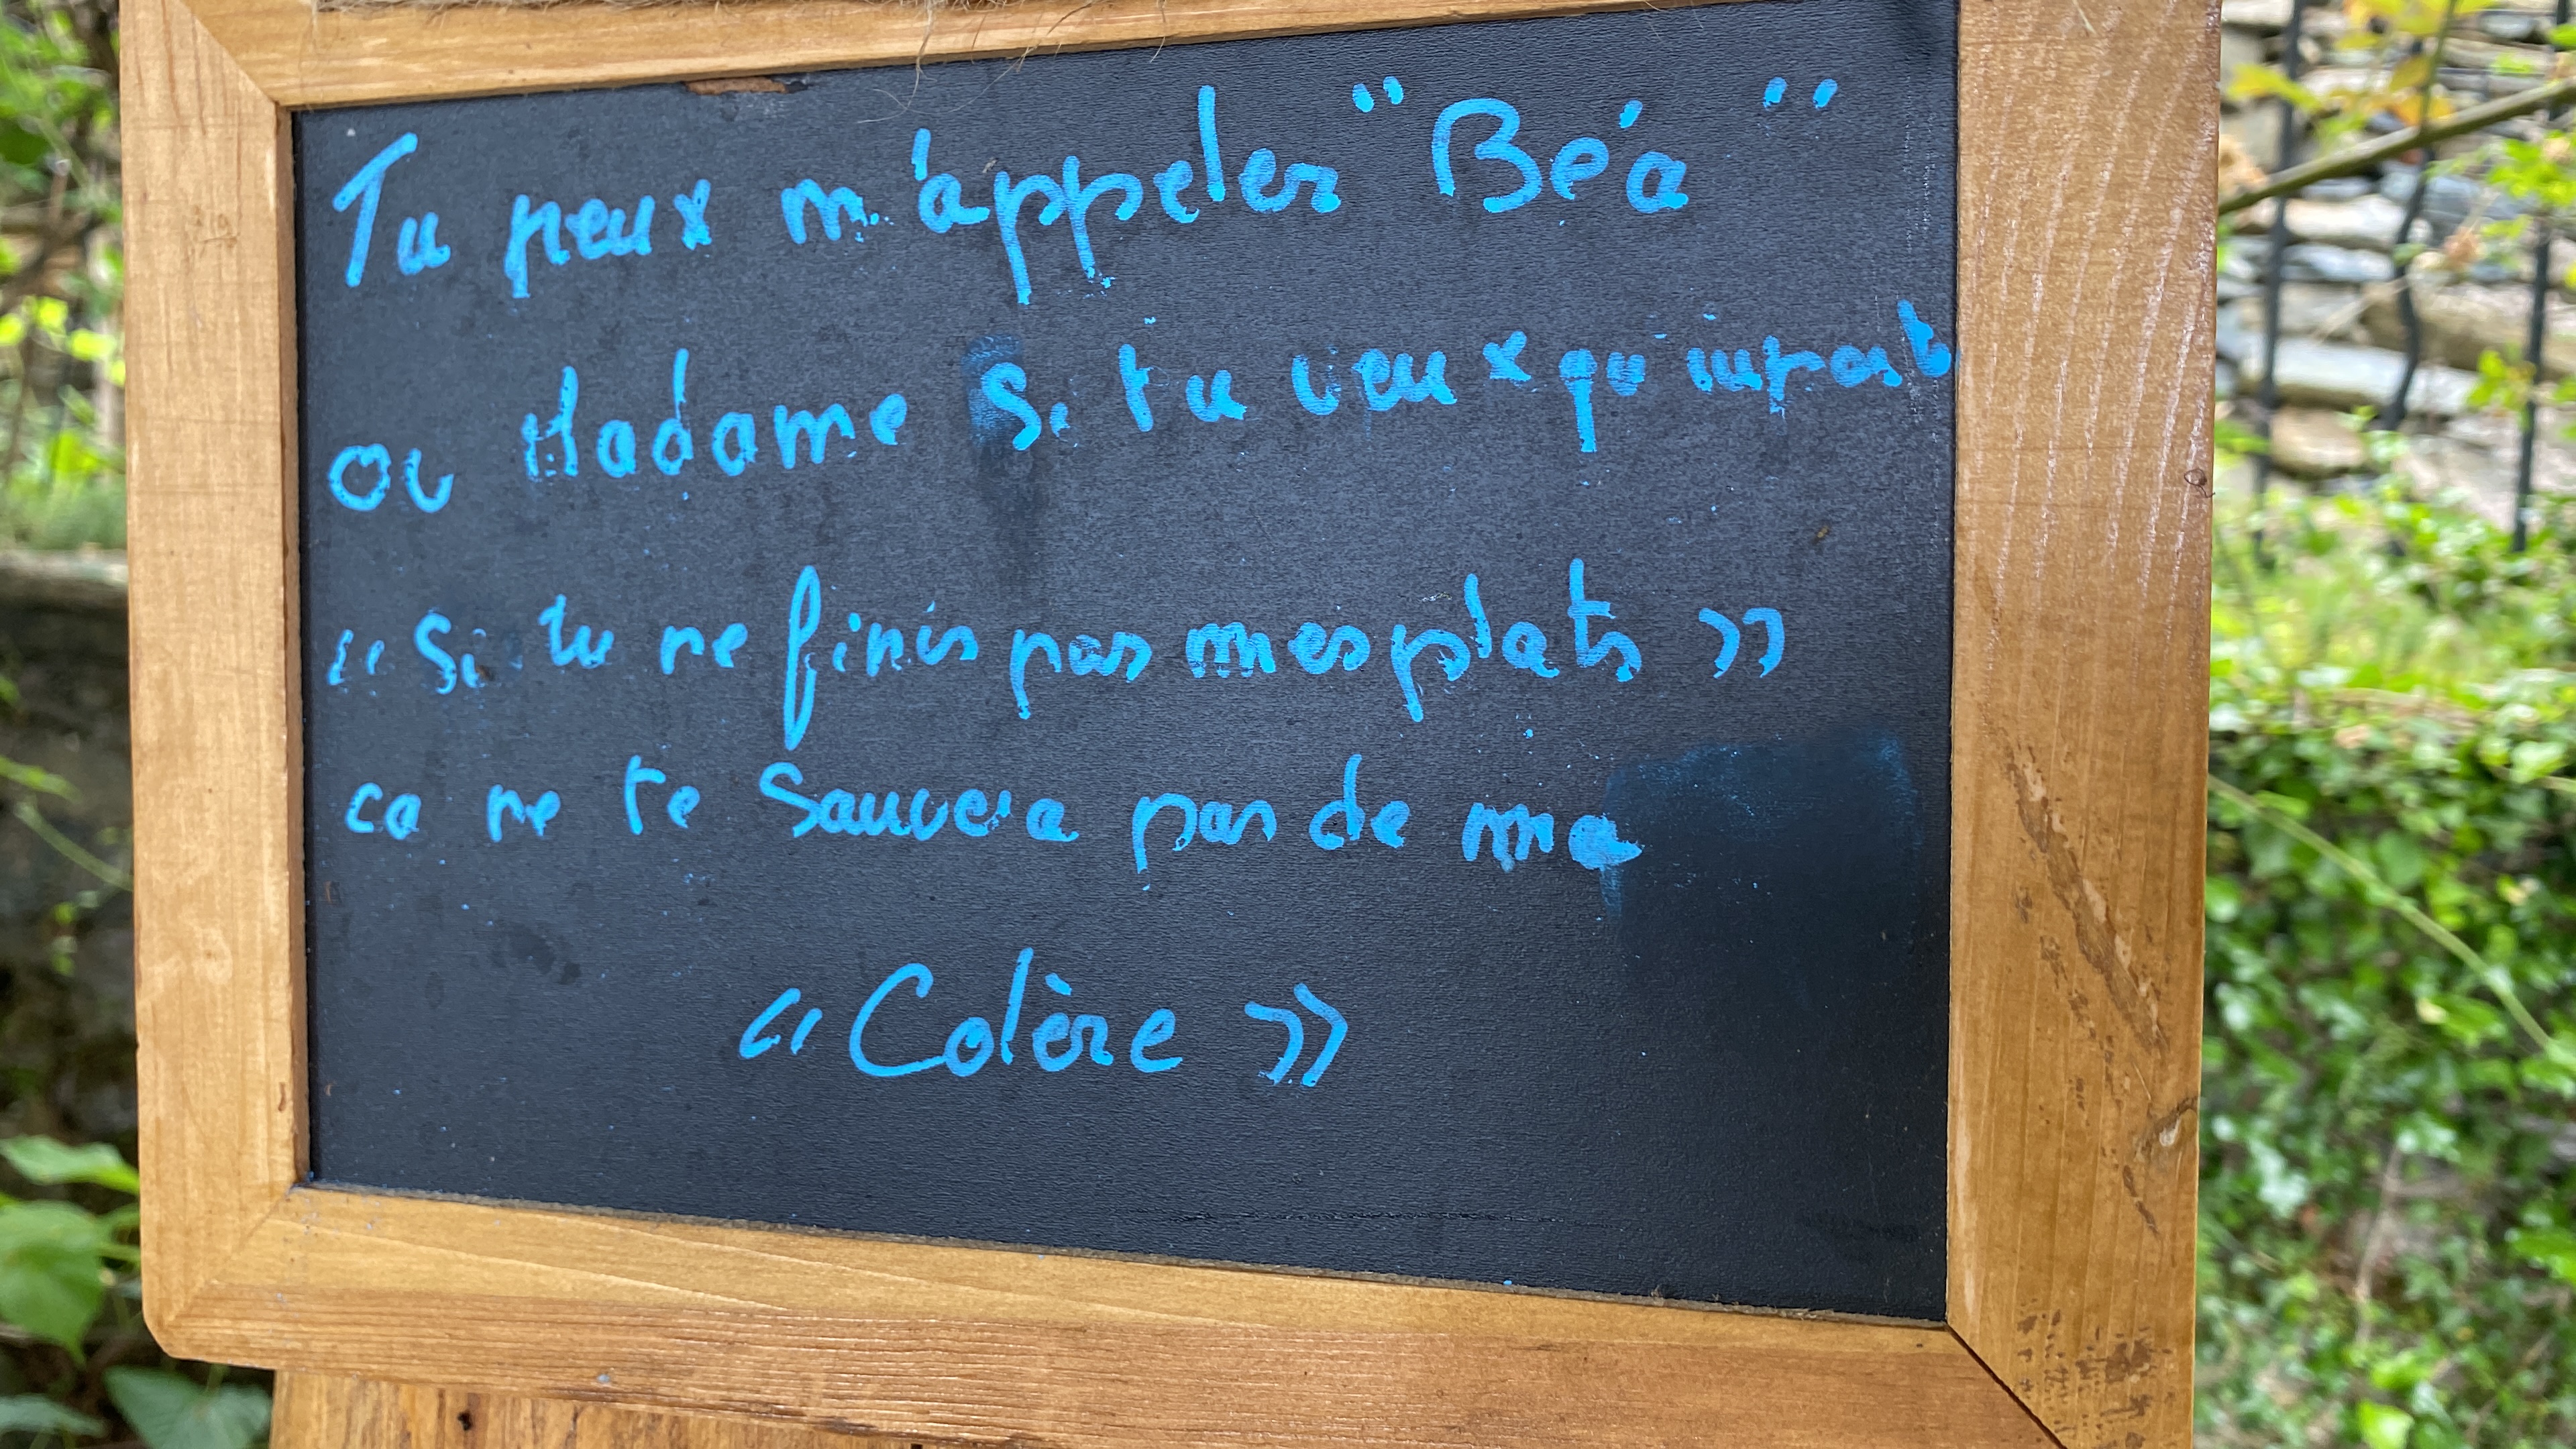 Tu peux m'appeler "Béa"
ou Madame Si tu veux qu'importe
« Si tu ne finis pas mes plats »
ca ne te Sauvera pas de ma
« Colère »